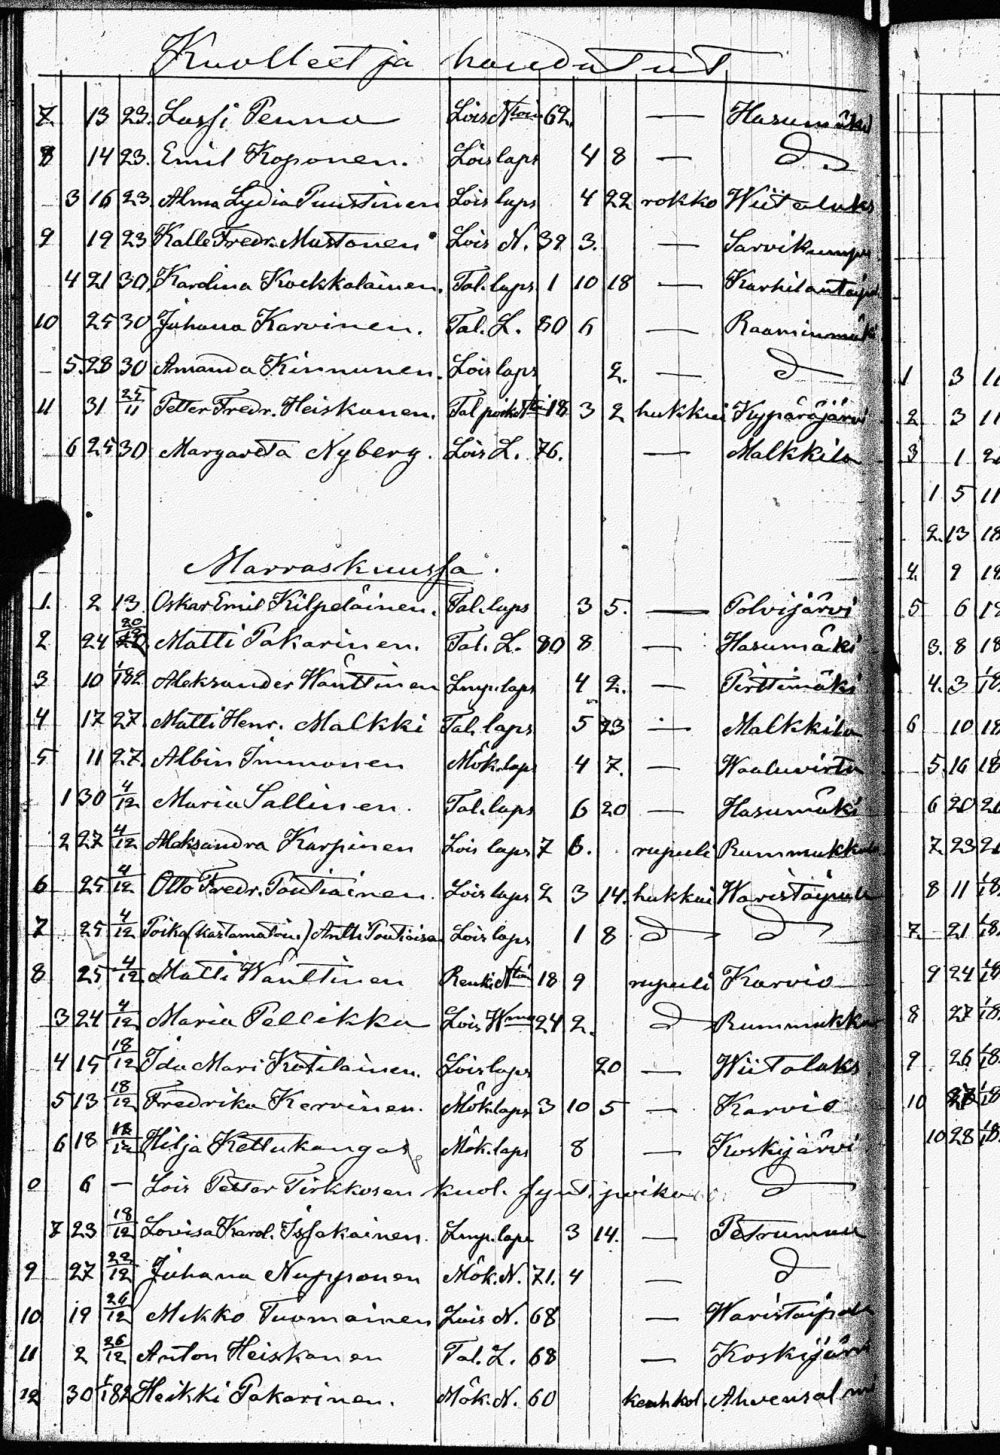 Kuolleet ja haudatut
7 13 23. Lassi Penna Lois Ntoin 62. — Hasumäki
8 14 23. Emil Koponen. Lois laps 4 8 — d:o
3 16 23. Alma Lydia Puustinen Lois laps 4 22 rokko Wiitalaks
9 19 23 Kalle Fredr. Mustonen Lois N. 39 3. — Sarvikumpu
4 21 30. Karolina Kockkalainen. Tal. laps 1 10 18 — Karhilantaipal
10 25 30 Juhana Karvinen. Tal. L. 80 6 — Raaminmäki
5. 28 30 Amanda Kinnunen. Lois laps 2. — d:o
11 31 25/11 Petter Fredr. Heiskanen. Tal poika 18 3 2 kukkui Kypäräjärvi
6 25 30 Margareta Nyberg. Lois L. 76. — Malkkila
Marraskuussa.
1. 2 13. Oskar Emil Kilpeläinen. Tal. laps 3 5. — Polvijärvi
2 24 20 Matti Pakarinen. Tal. L. 80 8 — Hasumäki
3 10 1/182 Aleksander Wänttinen Lmp. laps 4 2. — Pirttimäki
4 17 27. Matti Henr. Malkki Tal. laps 5 23 — Malkkila
5 11 27. Albin Immonen Mök. laps 4 7. — Waaluvirta
1 30 4/12 Maria Sallinen. Tal. laps 6 20 — Hasumäki
2 27 4/12 Aleksandra Karpinen Lois laps 7 6. rupuli Rummukkala
6 25 4/12 Otto Fredr. Poutiainen. Lois laps 2 3 14. kukkui Waristaipale
7 25 4/12 Poika (kastamatoin) Antti Lois laps 1 8 d:o d:o
8 25 4/12 Matti Wänttinen Renki Ntoin 18 9 rupuli Karvio
3 24 4/12 Maria Pellikka Lois Wmo 24 2. d:o Rummukka
4 15 18/12 Ida Mari Kotilainen. Lois laps 20 — Wiitalaks
5 13 18/12 Fredrika Kervinen. Mök. laps 3 10 5 — Karvio
6 18 18/12 Hilja Kettukangas Mök. laps 8 — Koskijärvi
0 6 — Lois Petter Tirkkosen kuol. synt. poika d:o
7 23 18/12 Lovisa Karol. Lmp. laps 3 14. — Petruma
9 27 22/12 Juhana Nupponen Mök. N. 71. 4 — d:o
10 19 26/12 Mikko Tuomainen Lois N. 68 — Waristaipale
11 2 26/12 Anton Heiskanen Tal. L. 68 — Koskijärvi
12 30 1/182 Heikki Pakarinen. Mök. N. 60 keuhkot. Ahvensalmi
1 3
2 3 11
3 1
1 5 11
2. 13 18
4. 9
5 6
3. 8 18
4. 3
6 10
5. 16 18
6 20
7 23
8 11
7. 21
9 24
8 27
9. 26
10
10 28